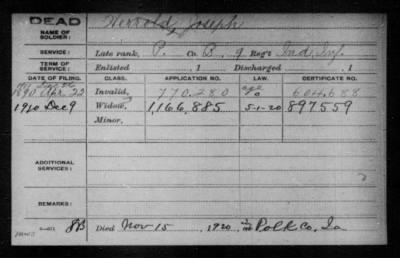 DEAD
NAME OF SOLDIER: Herrold, Joseph
SERVICE: Late rank, P. Co. B, 9 Reg't Ind. Inf.
TERM OF SERVICE: Enlisted , 1 Discharged , 1
DATE OF FILING. CLASS. APPLICATION NO. LAW. CERTIFICATE NO.
1890 Apr. 22 Invalid, 770.280 604.688
1920 Dec 9 Widow, 1,166,885 5-1-20 897559
Minor,
ADDITIONAL SERVICES:
REMARKS:
Died Nov 15 , 1920, Polk Co, Ia